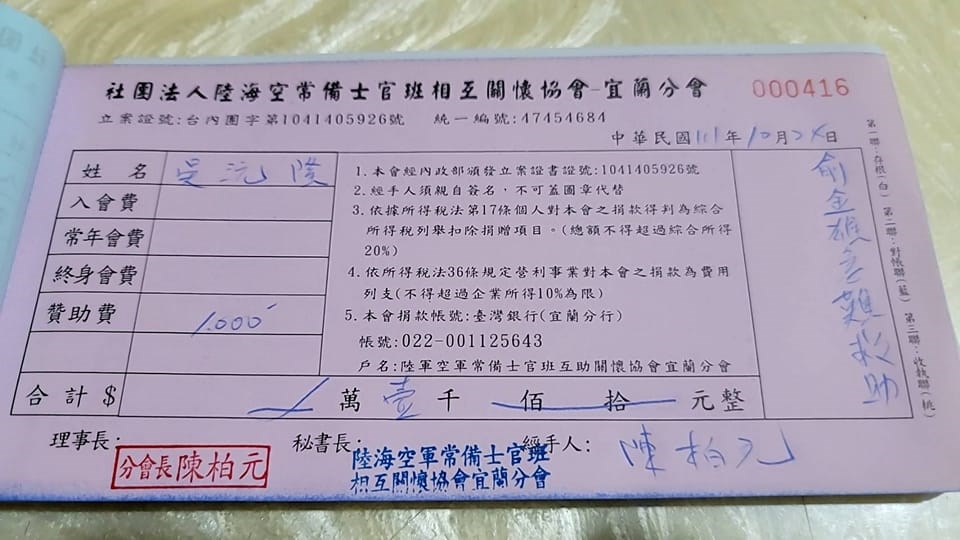 社團法人陸海空常備士官班相互關懷協會-宜蘭分會
000416
立案證號:台內團字第1041405926號 統一編號:47454684
中華民國111年10月24日
姓名 吳沅隆
入會費
常年會費
終身會費
贊助費 1,000
1.本會經內政部頒發立案證書證號:1041405926號
2.經手人須親自簽名，不可蓋圖章代替
3.依據所得稅法第17條個人對本會之捐款得判為綜合
所得稅列舉扣除捐贈項目。(總額不得超過綜合所得
20%)
4.依所得稅法36條規定營利事業對本會之捐款為費用
列支(不得超過企業所得10%為限)
5.本會捐款帳號:臺灣銀行(宜蘭分行)
帳號:022-001125643
戶名:陸軍空軍常備士官班互助關懷協會宜蘭分會
俞金 急難救助
第一聯:存根(白) 第二聯:對帳聯(藍) 第三聯:收執聯(桃)
合計$ 萬壹千佰拾元整
理事長: 秘書長: 經手人: 陳柏元
分會長陳柏元
陸海空軍常備士官班
相互關懷協會宜蘭分會